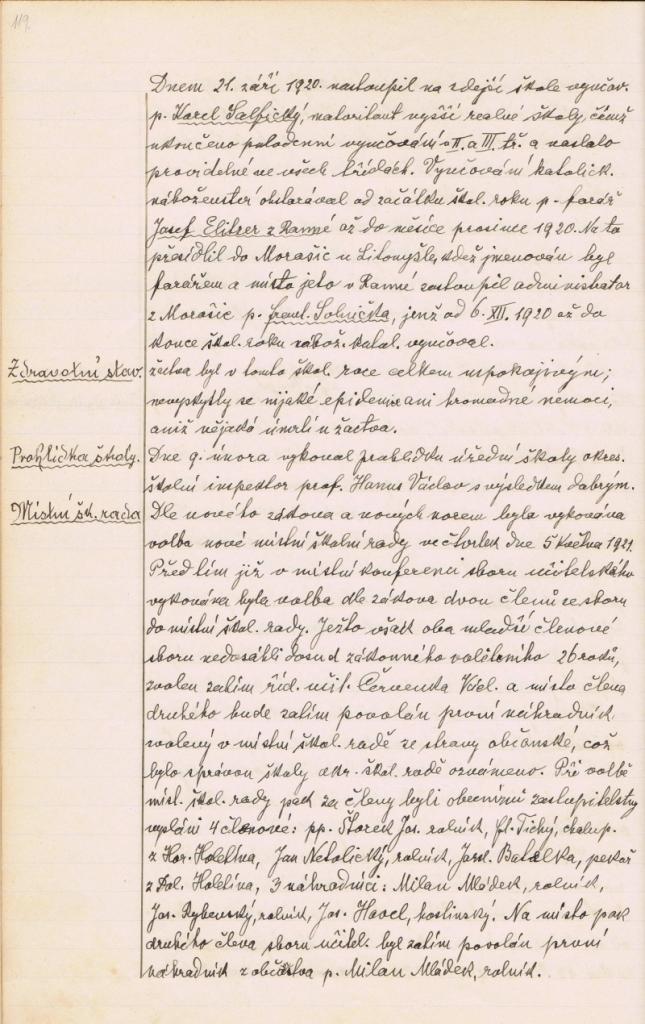 119.
Dnem 21. září 1920. nastoupil na zdejší škole vyučov.
p. Karel Salfický, maturitant vyšší reálné školy, čímž
ukončeno polodenní vyučování v II. a III. tř. a nastalo
pravidelné ve všech třídách. Vyučování katolick.
náboženství obstarával od začátku škol. roku p. farář
Josef Elitzer z Ranné až do měsíce prosince 1920. Na to
přesídlil do Morašic u Litomyšle, kdež jmenován byl
farářem a místo jeho v Ranné zastoupil administrator
z Morašic p. frant. Solnička, jenž od 6. XII. 1920 až do
konce škol. roku nábož. katol. vyučoval.
Zdravotní stav. žactva byl v tomto škol. roce celkem uspokojivým;
nevyskytly se nijaké epidemie ani hromadné nemoci,
aniž nějaká úmrtí u žactva.
Prohlídka školy. Dne 9. února vykonal prohlídku zdejší školy okres.
školní inspektor prof. Hanus Václav s výsledkem dobrým.
Místní šk. rada Dle nového zákona a nových norem byla vykonána
volba nové místní školní rady ve čtvrtek dne 5 května 1921.
Před tím již v místní konferenci sboru učitelského
vykonána byla volba dle zákona dvou členů ze sboru
do místní škol. rady. Ježto však oba mladší členové
sboru nedosáhli dosud zákonného volebního 26 roků,
zvolen zatím říd. učit. Červenka Václ. a místo člena
druhého bude zatím povolán první náhradník
volený v místní škol. radě ze strany občanské, což
bylo správou školy okr. škol. radě oznámeno. Při volbě
míst. škol. rady pak za členy byli obecními zastupitelstvy
vysláni 4 členové: pp. Štorek Jos. rolník, fr. Tichý, chalup.
z Hor. Holetína, Jan Netolický, rolník, Jarol. Batalka, pekař
z Dol. Holetína, 3 náhradníci: Milan Mládek, rolník,
Jos. Rybenský, rolník, Jos. Havel, hostinský. Na místo pak
druhého člena sboru učitel. byl zatím povolán první
náhradník z občanstva p. Milan Mládek, rolník.